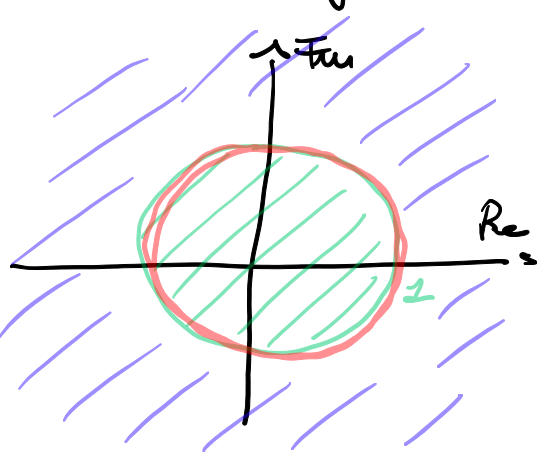 Im
Re
1